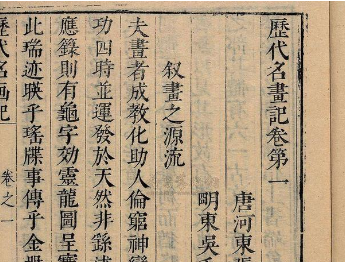 歷代名畫記卷第一
唐河東張
明東吳
叙畫之源流
夫畫者成教化助人倫窮神變
功四時並運發於天然非繇述
應籙則有龜字効靈龍圖呈寳
此瑞迹暎乎瑤牒事傳乎金册
歷代名画記
卷之一